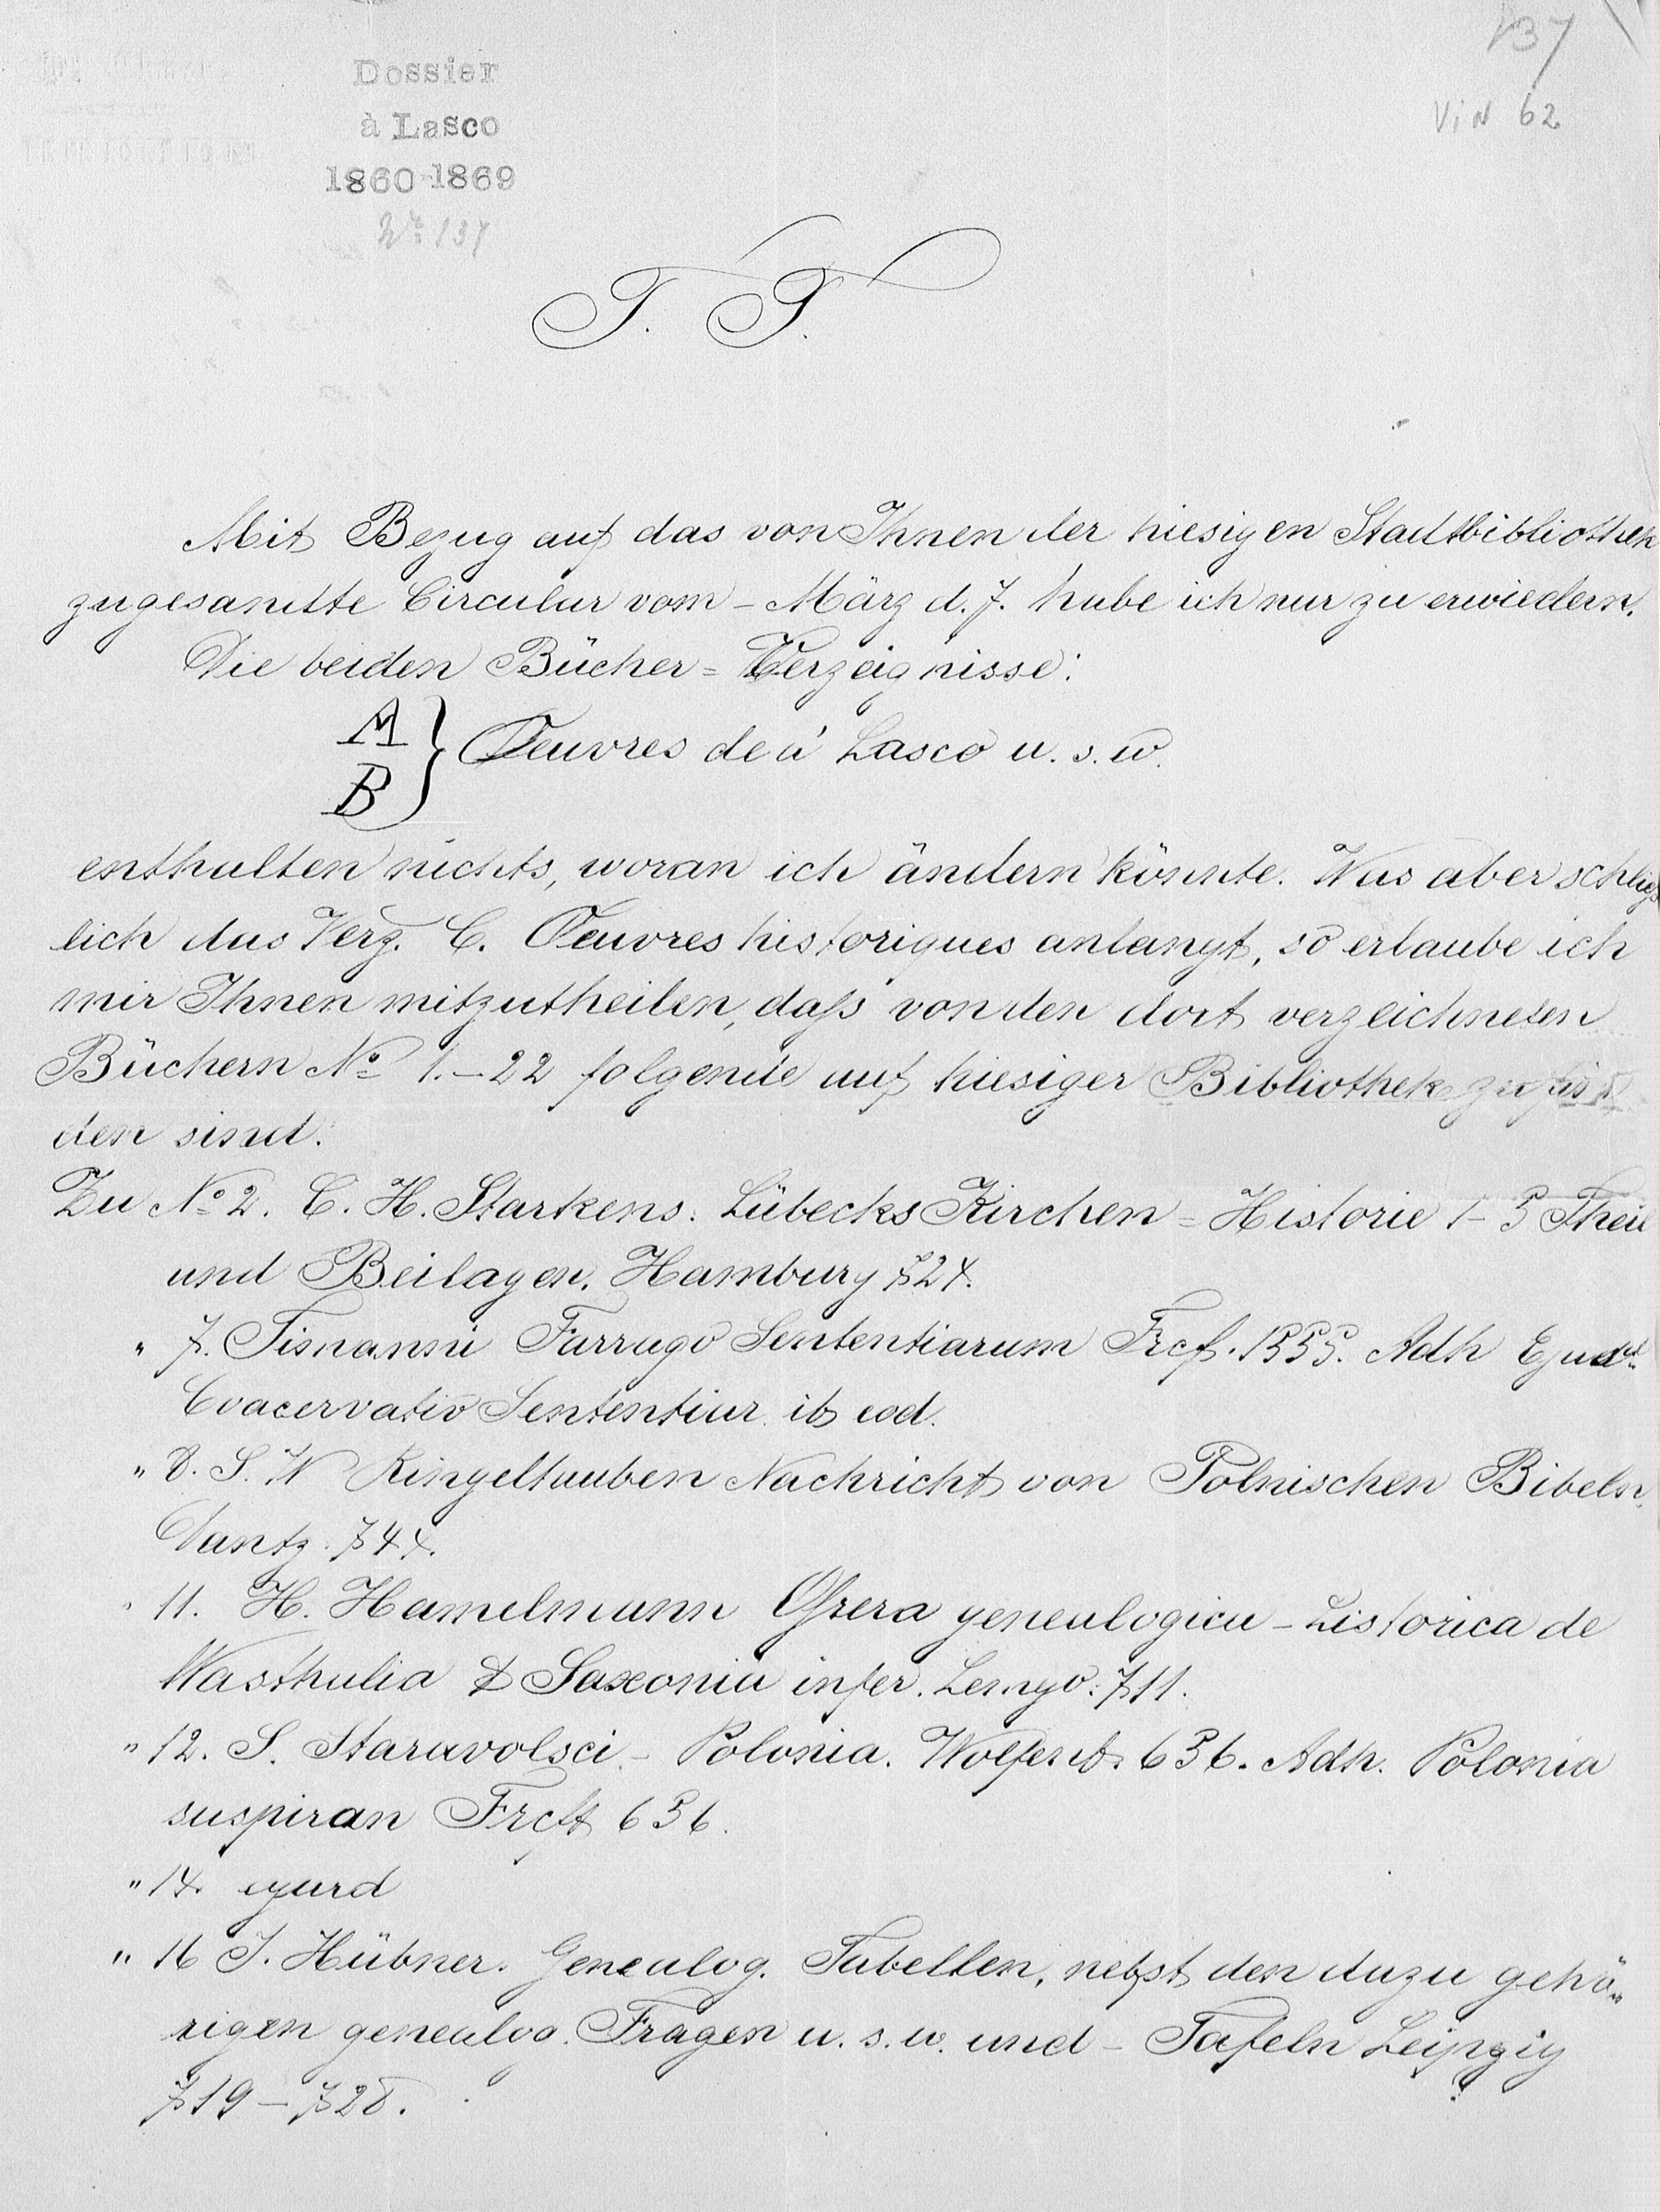 137
ViN 62
Dossier
à Lasco
1860-1869
No 137
P. P.
Mit Bezug auf das von Ihnen der hiesigen Stadtbibliothek
zugesandte Circular vom – März d. J. habe ich nur zu erwiedern.
Die beiden Bücher=Verzeignisse:
A
B } Œuvres de à Lasco u. s. w.
enthalten nichts, woran ich ändern könnte. Was aber schließ
lich das Verz. C. Œuvres historiques anlangt, so erlaube ich
mir Ihnen mitzutheilen, daß von den dort verzeichneten
Büchern No 1.–22 folgende auf hiesiger Bibliothek zu fin
den sind.
Zu No 2. C. H. Starkens. Lübecks Kirchen=Historie 1–5 Theil
und Beilagen. Hamburg 724.
" 7. Timanni Farrago Sententiarum Frcf. 1555. Adh Ejusd.
Coacervatio Sententiar. ib eod.
" 8. S. W Ringeltauben Nachricht von Polnischen Bibeln.
Dantz. 744.
" 11. H. Hamelmann Opera genealogica–historica de
Wasthalia & Saxonia infer. Lemgo. 711.
" 12. S. Staravolsci – Polonia. Wolferb. 656. Adh. Polonia
suspiran Frcft 656.
" 14. ejusd
" 16 J. Hübner. Genealog. Tabellen, nebst den dazu gehö„
rigen genealog. Fragen u. s. w. und – Tafeln Leipzig
719–728.